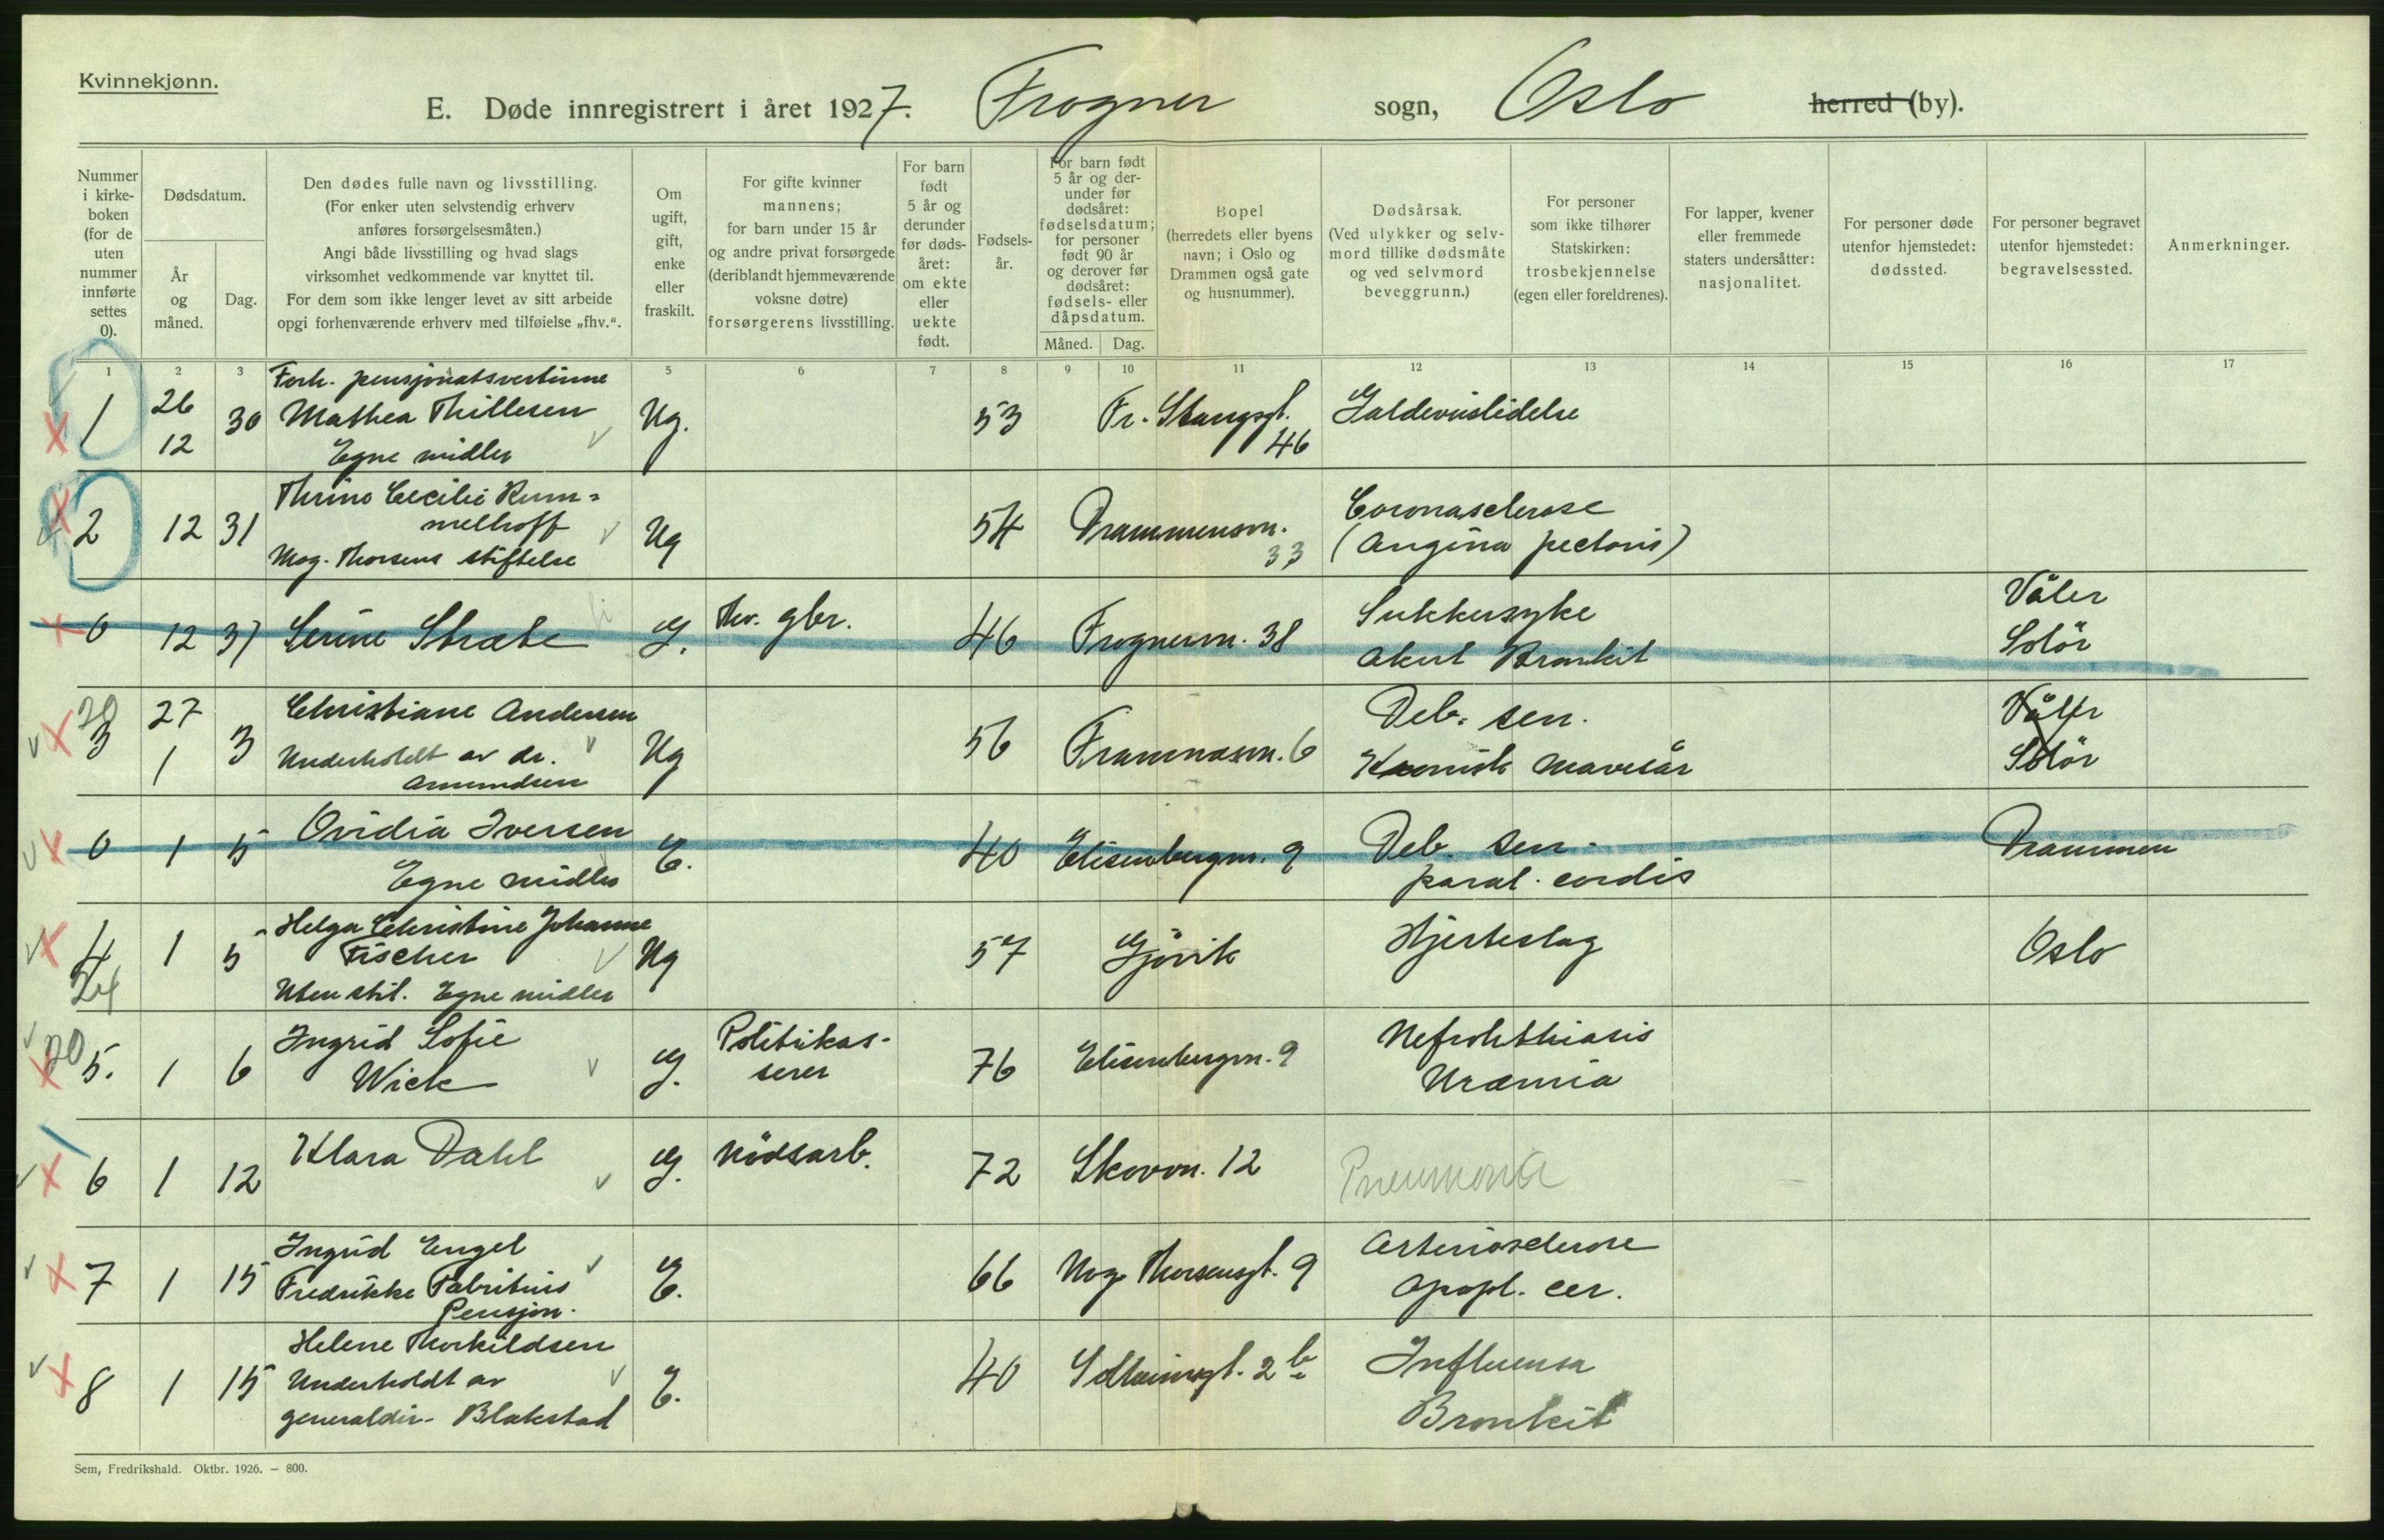 Kvinnekjønn.
E. Døde innregistrert i året 1927. Frogner sogn, Oslo herred (by).
Nummer i kirke- boken (for de uten nummer innførte settes 0).
Dødsdatum.
År og måned.
Dag.
Den dødes fulle navn og livsstilling.
(For enker uten selvstendig erhverv
anføres forsørgelsesmåten.)
Angi både livsstilling og hvad slags
virksomhet vedkommende var knyttet til.
For dem som ikke lenger levet av sitt arbeide
opgi forhenværende erhverv med tilføielse „fhv.“.
Om ugift, gift, enke eller fraskilt.
For gifte kvinner
mannens;
for barn under 15 år
og andre privat forsørgede
(deriblandt hjemmeværende
voksne døtre)
forsørgerens livsstilling.
For barn født 5 år og derunder før døds- året: om ekte eller uekte født.
Fødsels- år.
For barn født 5 år og der- under før dødsåret: fødselsdatum; for personer født 90 år og derover før dødsåret: fødsels- eller dåpsdatum.
Måned. Dag.
Bopel
(herredets eller byens
navn; i Oslo og
Drammen også gate
og husnummer).
Dødsårsak.
(Ved ulykker og selv-
mord tillike dødsmåte
og ved selvmord
beveggrunn.)
For personer
som ikke tilhører
Statskirken:
trosbekjennelse
(egen eller foreldrenes).
For lapper, kvener
eller fremmede
staters undersåtter:
nasjonalitet.
For personer døde
utenfor hjemstedet:
dødssted.
For personer begravet
utenfor hjemstedet:
begravelsessted.
Anmerkninger.
1 2 3 5 6 7 8 9 10 11 12 13 14 15 16 17
Forh. pensjonatsvertinne
1 26 12 30 Mathea Thillesen Ug. 53 Fr. Stangsgt. 46 Galdeveislidelse
Egne midler
Thrine Cecilie Rum=
2 12 31 melhoff Ug 54 Drammensvn. 33 Coronasclerose
Mog. Thorsens stiftelse (Angina pectoris)
0 12 31 Serine Stræte G. Fhv. gbr. 46 Frognervn. 38 Sukkersyke Våler
Akut Bronkit Solör
20
3 27 1 3 Christiane Andersen Ug 56 Framnæsvn. 6 Deb. sen. Våler
Underholdt av dr. Kronisk mavesår Solör
Amundsen
0 1 5 Ovidia Iversen E. 40 Elisenbergvn. 9 Deb. sen. Drammen
Egne midler paral. cordis
4 1 5 Helga Christine Johanne Ug 57 Gjövik Hjerteslag Oslo
Fischer
Uten stil. Egne midler
20
5. 1 6 Ingrid Sofie G. Politikas- 76 Elisenbergvn. 9 Nefrolithiasis
Wick serer Uræmia
6 1 12 Klara Dahl G. Nödsarb. 72 Skovvn. 12 Pneumonia
7 1 15 Ingrid Engel E. 66 Mog. Thorsensgt. 9 Arteriosclerose
Fredrikke Fabritius Apopl. cer.
Pensjon.
8 1 15 Helene Thorkildsen E. 40 2 b Influensa
Underholdt av Bronkit
generaldir. Blakstad
Sem, Fredrikshald. Oktbr. 1926. — 800.